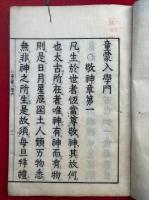 童蒙入學門
○敬神章第一
凡生於世者恆當尊敬神其故何
也太古所在者唯神有神而有物
則是日月星辰國土人類万物悉
無非神之所生是故每旦拜禮